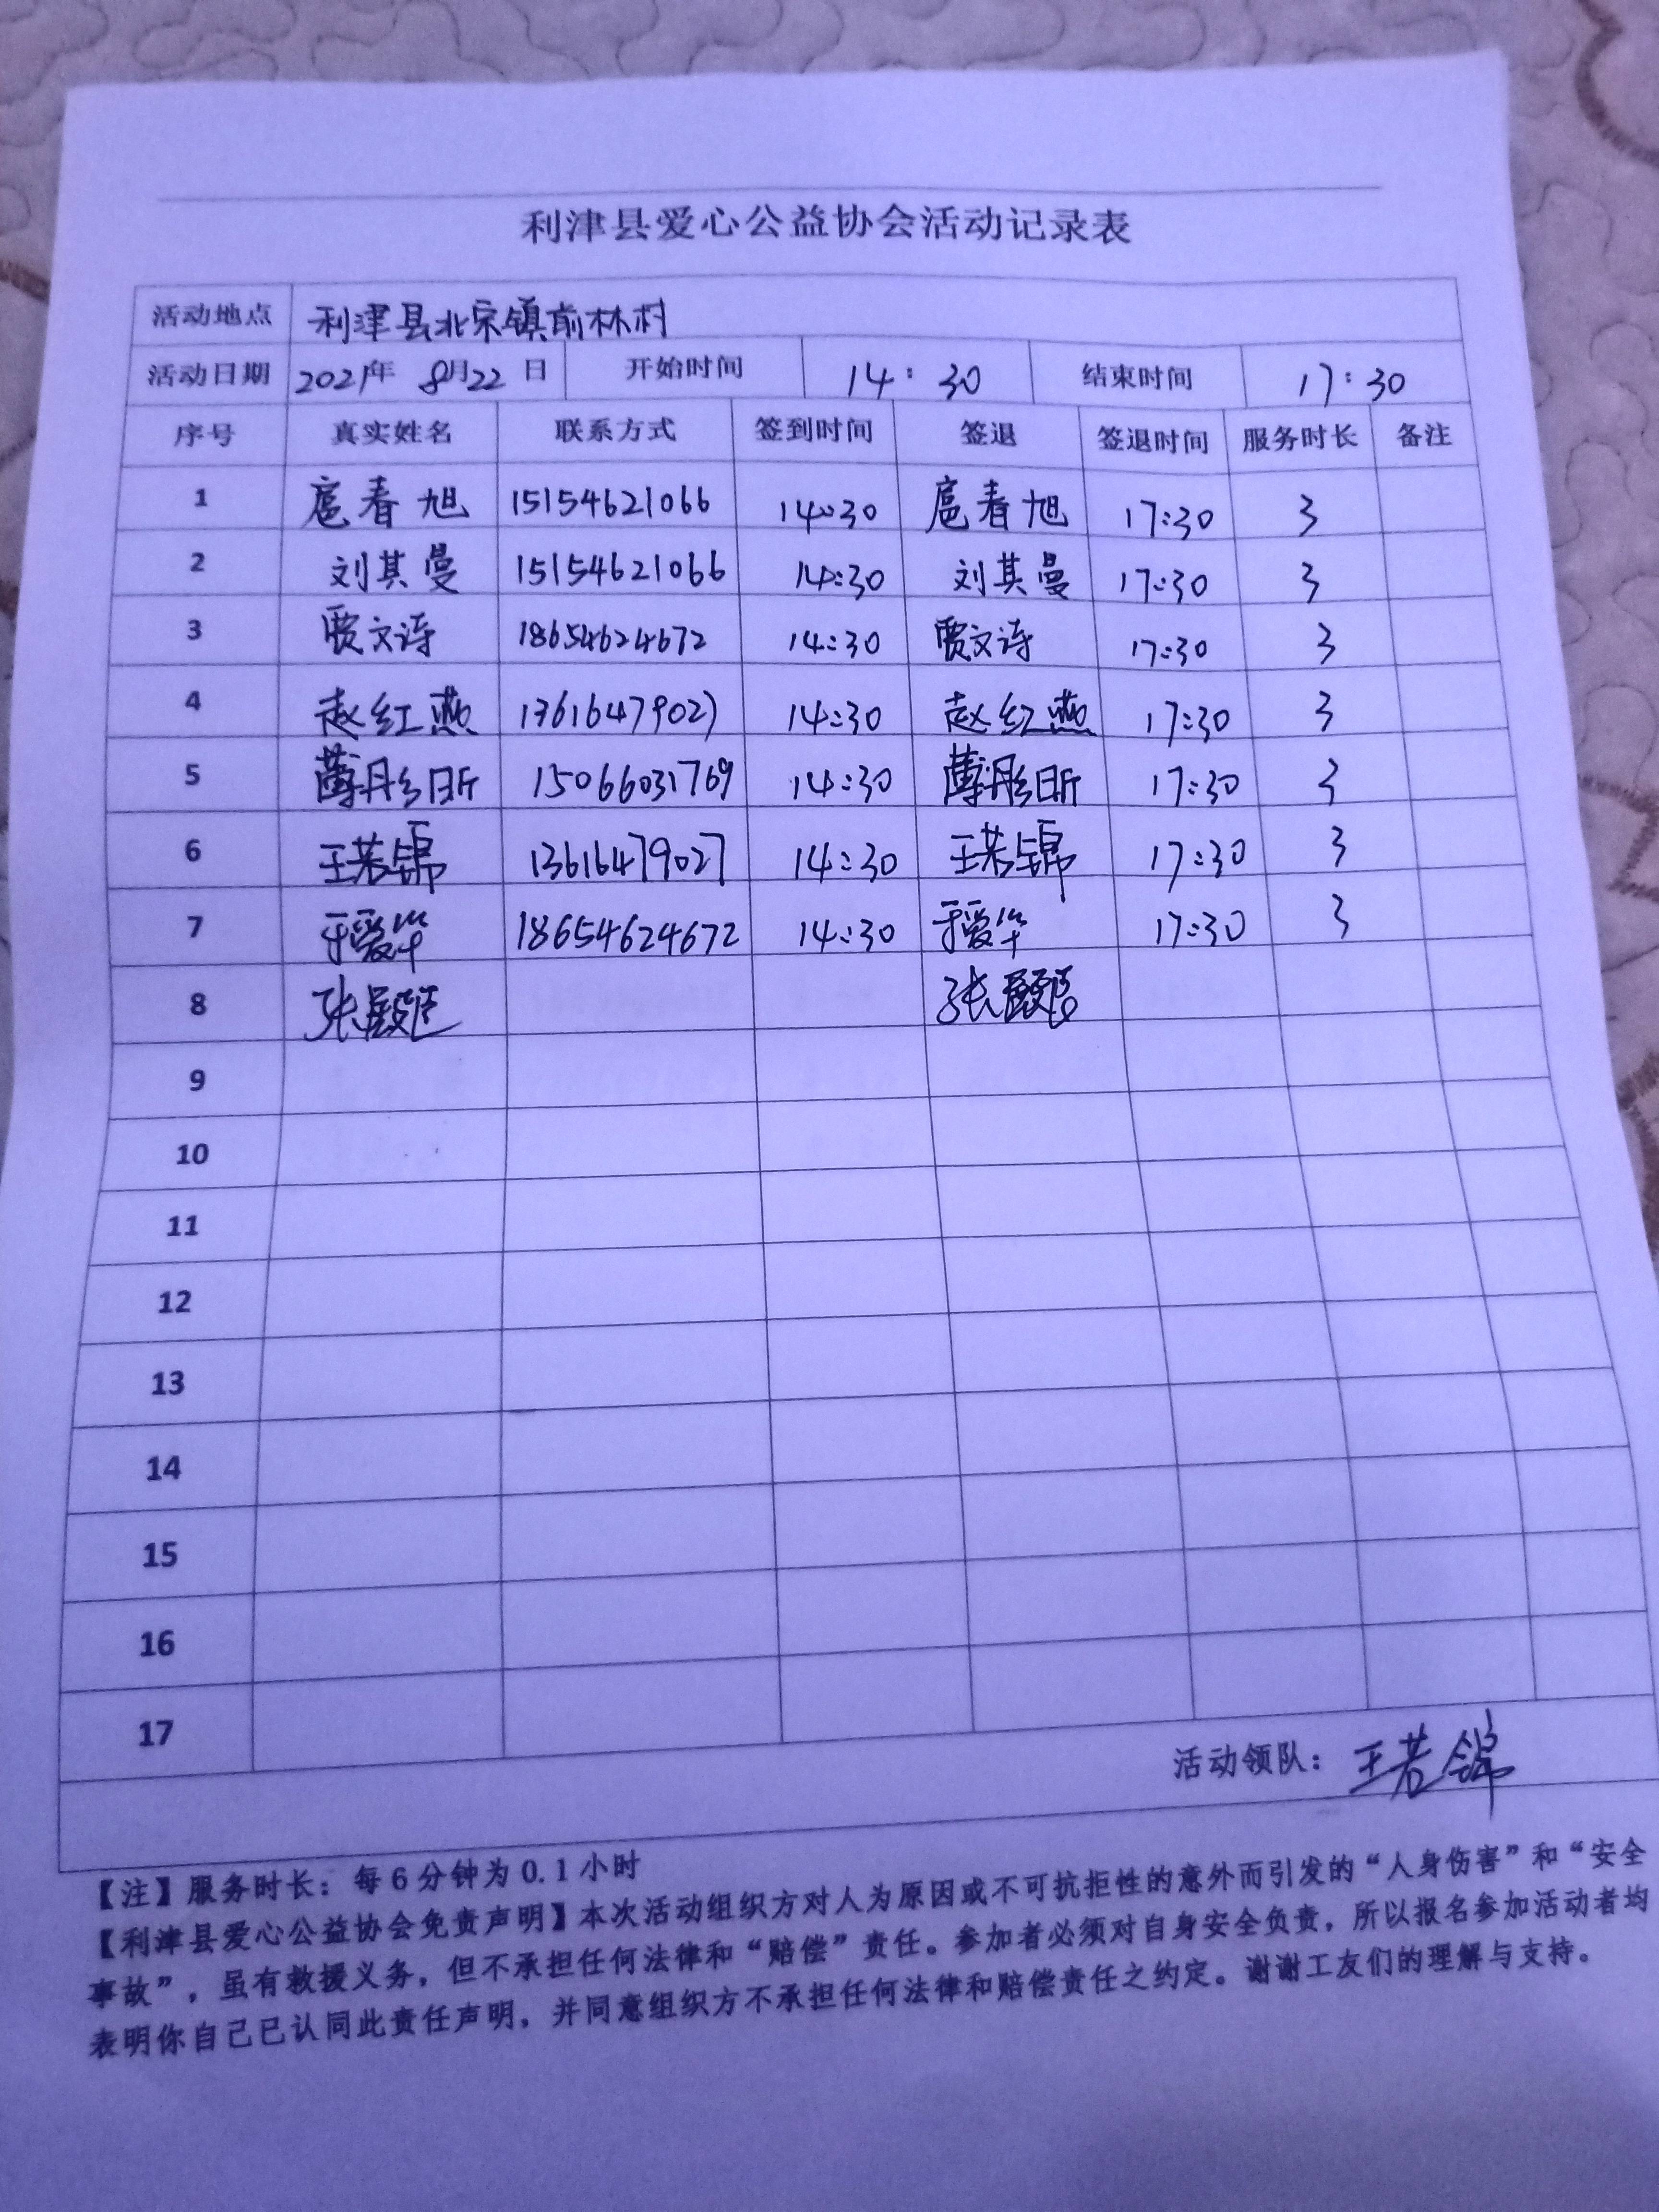 利津县爱心公益协会活动记录表
活动地点 利津县北宋镇前林村
活动日期 2021年 8月22日 开始时间 14:30 结束时间 17:30
序号 真实姓名 联系方式 签到时间 签退 签退时间 服务时长 备注
1 扈春旭 15154621066 14:30 扈春旭 17:30 3
2 刘其曼 15154621066 14:30 刘其曼 17:30 3
3 贾文诗 18654624672 14:30 贾文诗 17:30 3
4 赵红燕 13616479027 14:30 赵红燕 17:30 3
5 薄彤昕 15066031769 14:30 薄彤昕 17:30 3
6 王若锦 13616479027 14:30 王若锦 17:30 3
7 于爱华 18654624672 14:30 于爱华 17:30 3
8 张 张
9
10
11
12
13
14
15
16
17
活动领队：王若锦
【注】服务时长：每6分钟为0.1小时
【利津县爱心公益协会免责声明】本次活动组织方对人为原因或不可抗拒性的意外而引发的“人身伤害”和“安全
事故”，虽有救援义务，但不承担任何法律和“赔偿”责任。参加者必须对自身安全负责，所以报名参加活动者均
表明你自己已认同此责任声明，并同意组织方不承担任何法律和赔偿责任之约定。谢谢工友们的理解与支持。